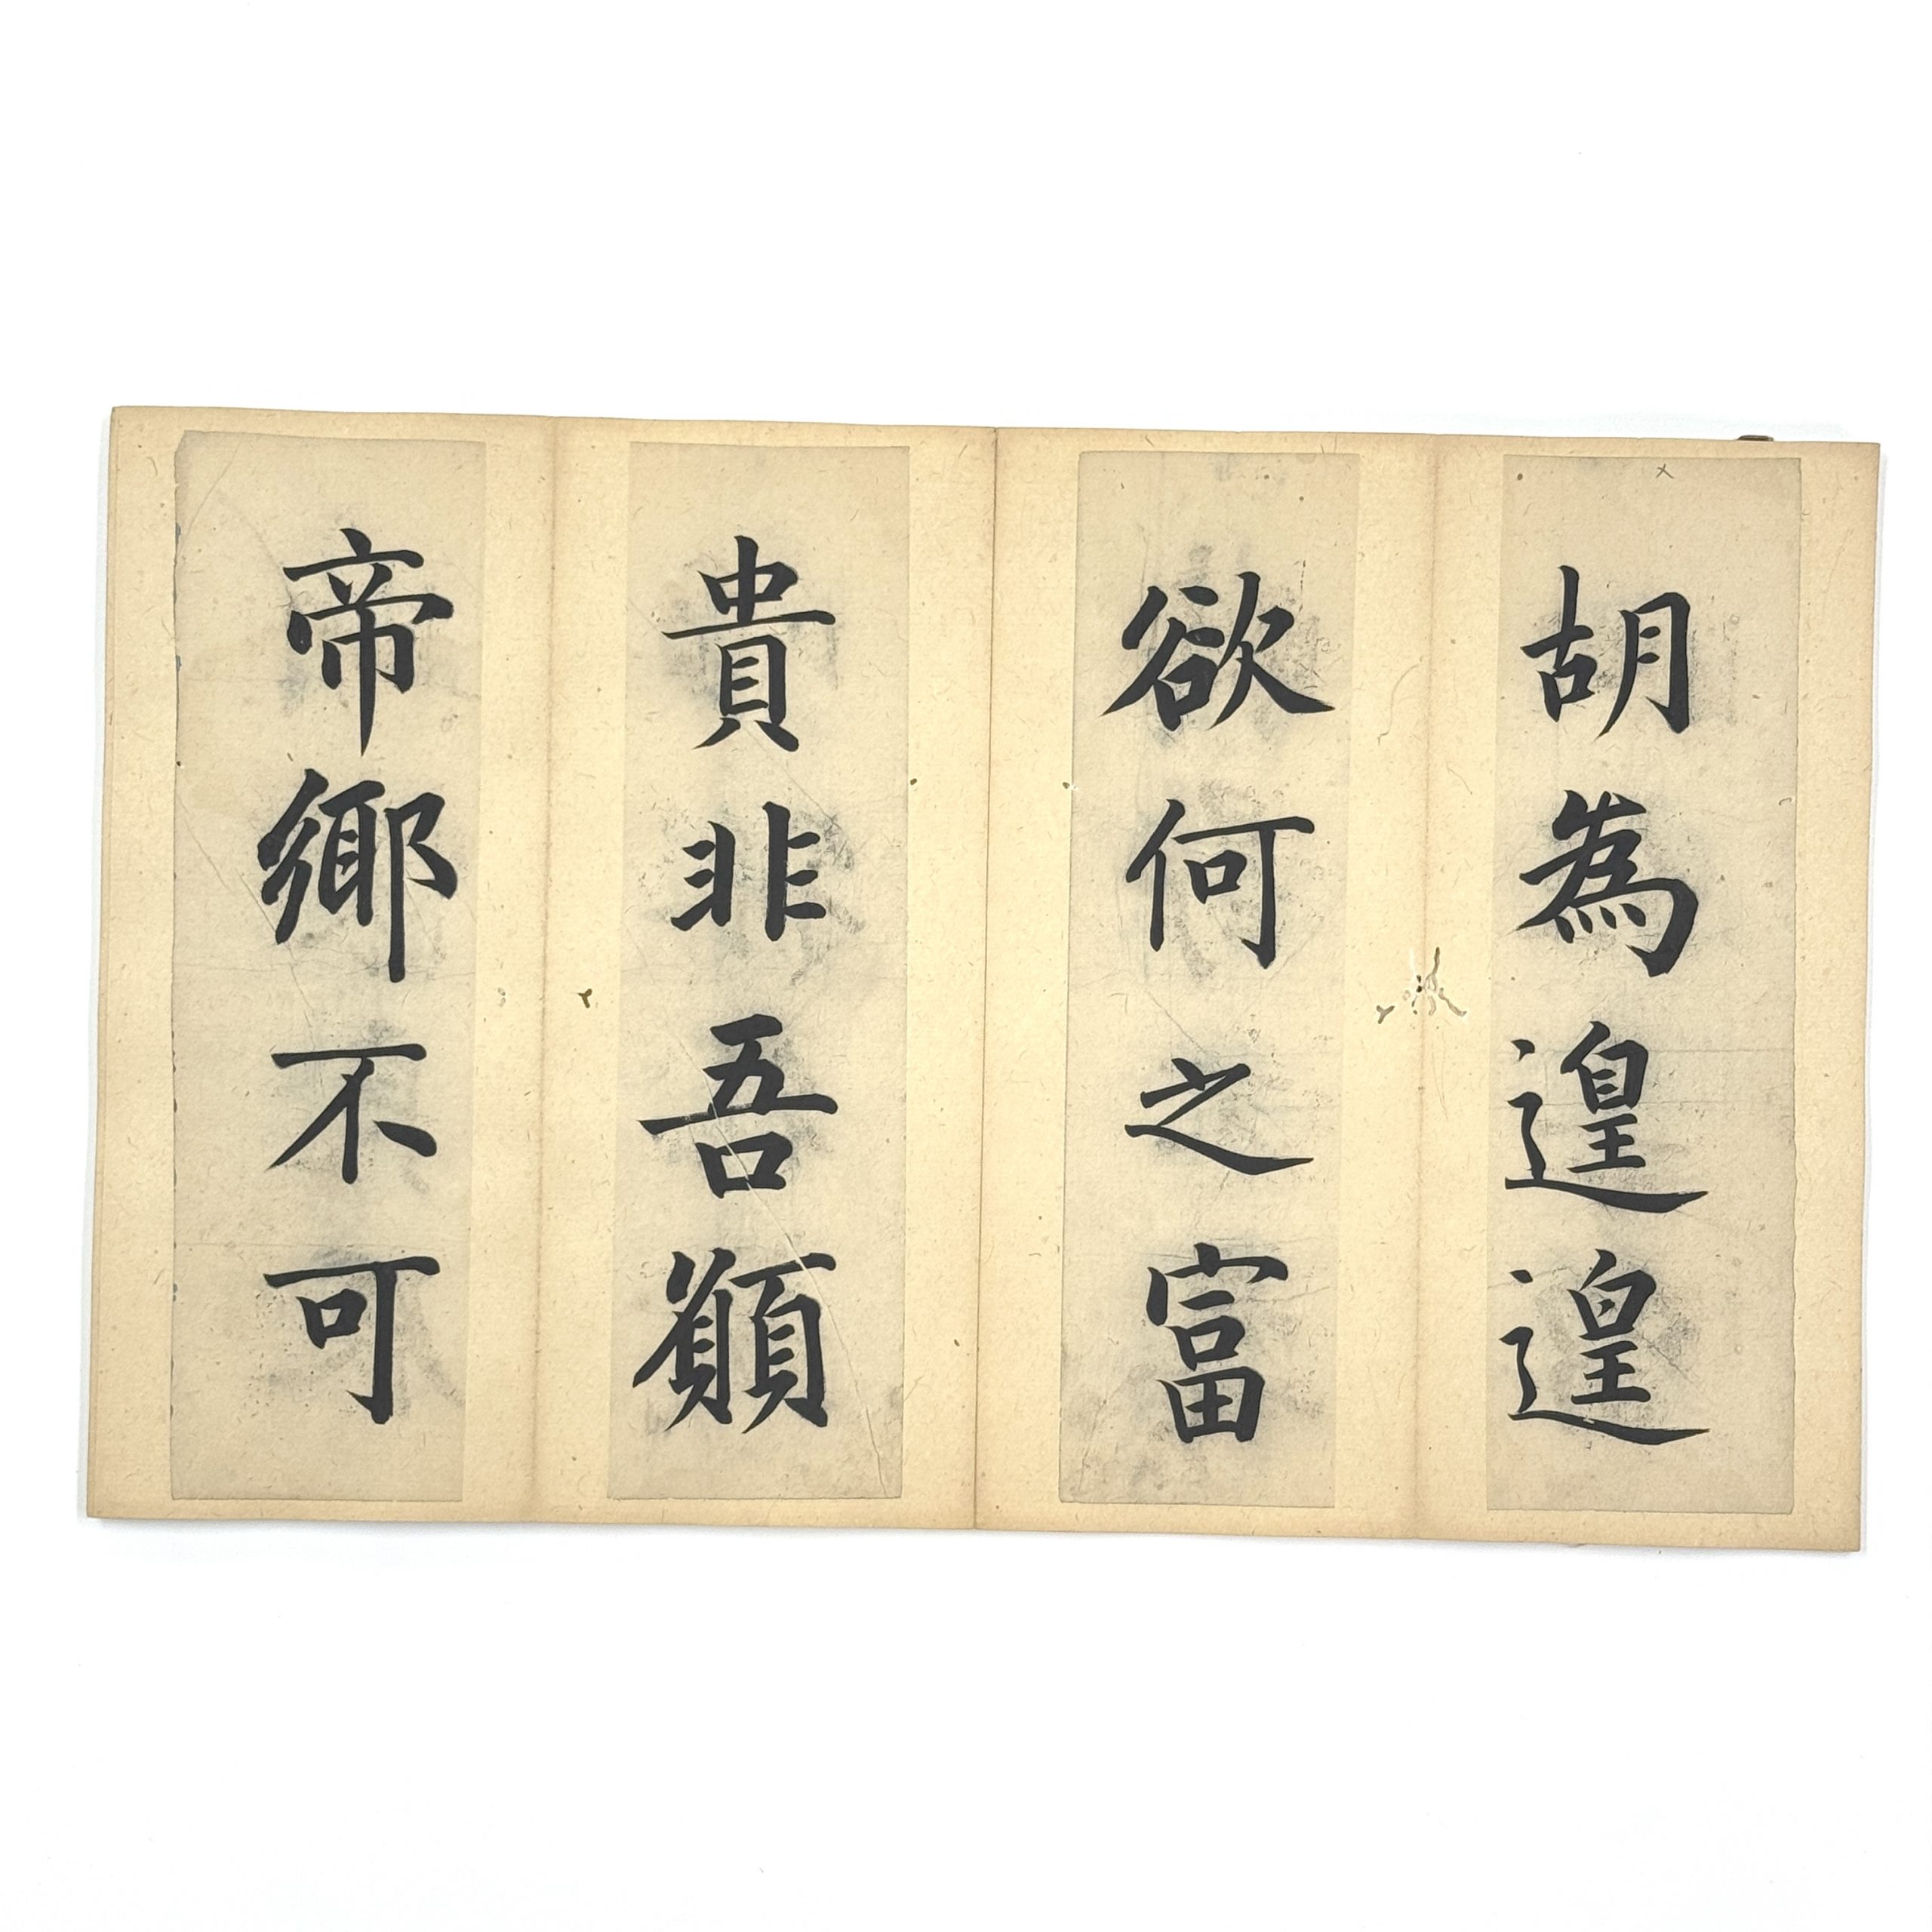 胡為遑遑
欲何之富
貴非吾願
帝鄉不可